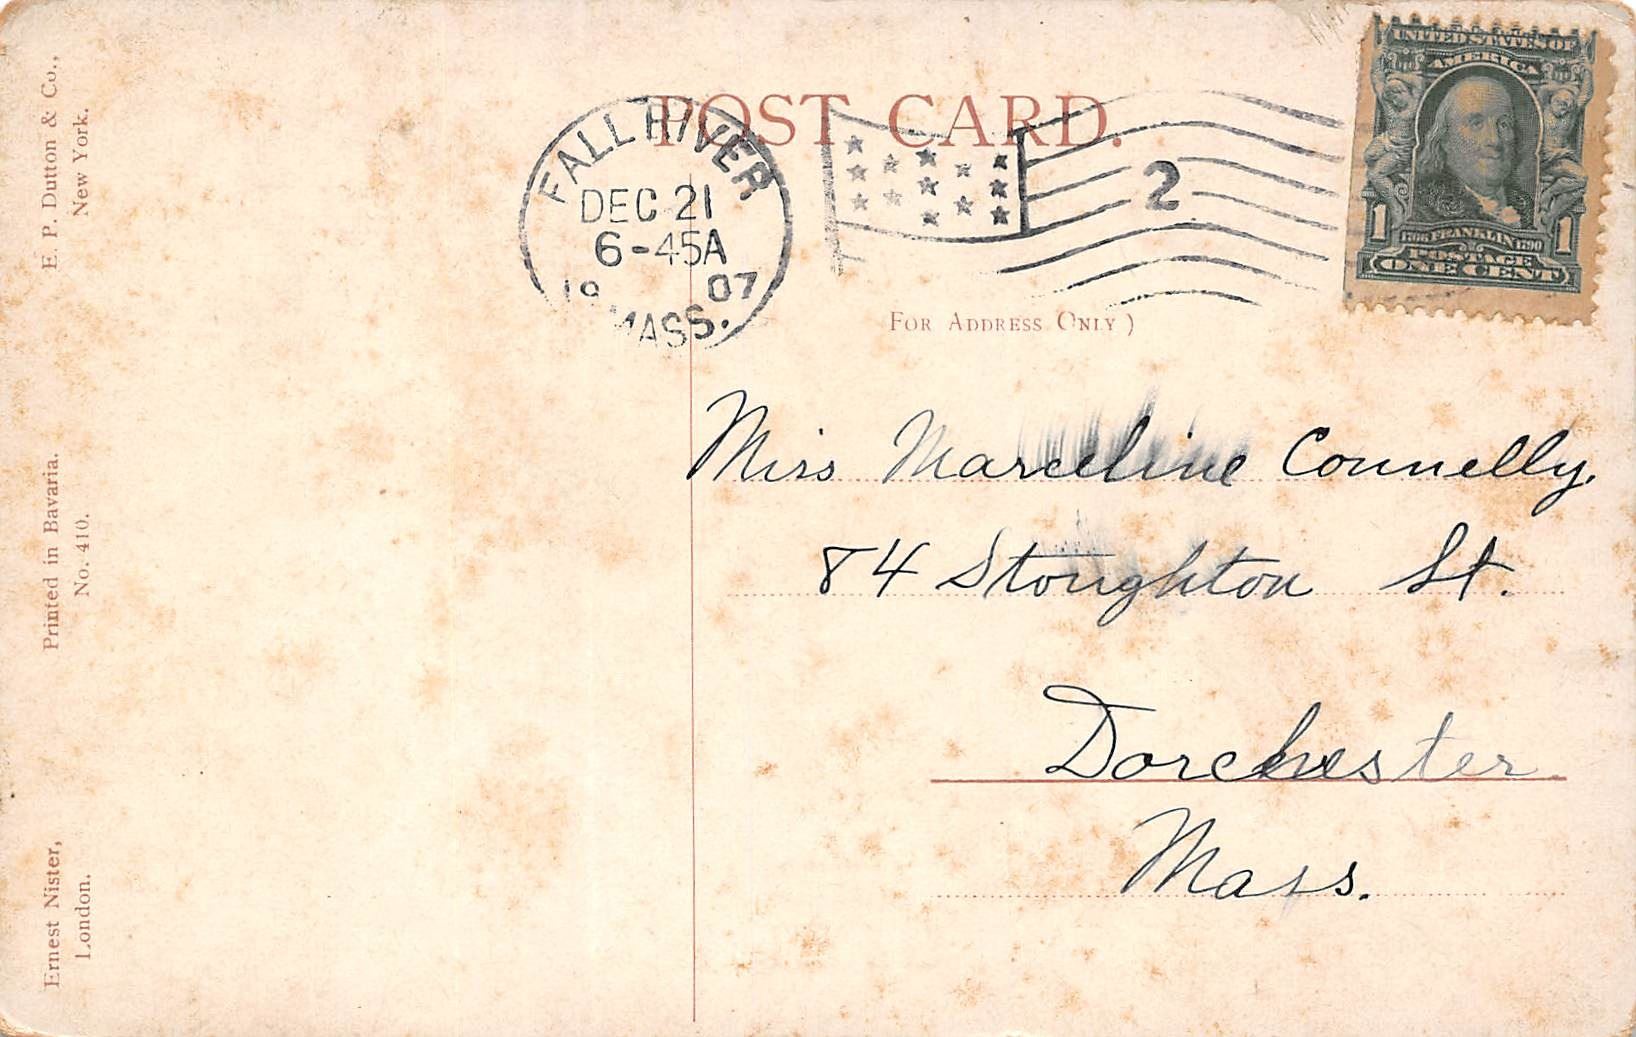 E. P. Dutton & Co.,
New York.
Printed in Bavaria.
No. 410.
Ernest Nister,
London.
POST CARD.
FALL RIVER
DEC 21
6-45A
19 07
MASS.
2
UNITED STATES OF
AMERICA
1 1
1706 FRANKLIN 1790
POSTAGE
ONE CENT
FOR ADDRESS ONLY )
Miss Marceline Connelly,
84 Stoughton St.
Dorchester
Mass.